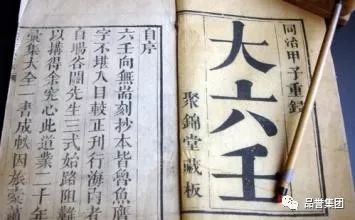 同治甲子重鐫
大六壬
聚錦堂藏板
自序
六壬向無耑刻抄本皆魯魚
字不堪入目較正刊行海內者
自暘谷閻先生三式始路阻
以搆得余宛心此道業二十年
彙集大全一書成帙因旅
品誉集团